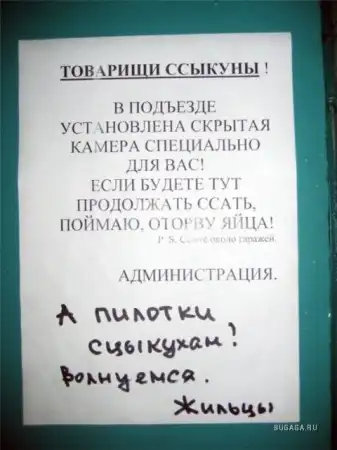 ТОВАРИЩИ ССЫКУНЫ !
В ПОДЪЕЗДЕ
УСТАНОВЛЕНА СКРЫТАЯ
КАМЕРА СПЕЦИАЛЬНО
ДЛЯ ВАС!
ЕСЛИ БУДЕТЕ ТУТ
ПРОДОЛЖАТЬ ССАТЬ,
ПОЙМАЮ, ОТОРВУ ЯЙЦА!
P. S. около гаражей.
АДМИНИСТРАЦИЯ.
А пилотки
сцыкухам?
Волнуемся.
Жильцы
BUGAGA.RU